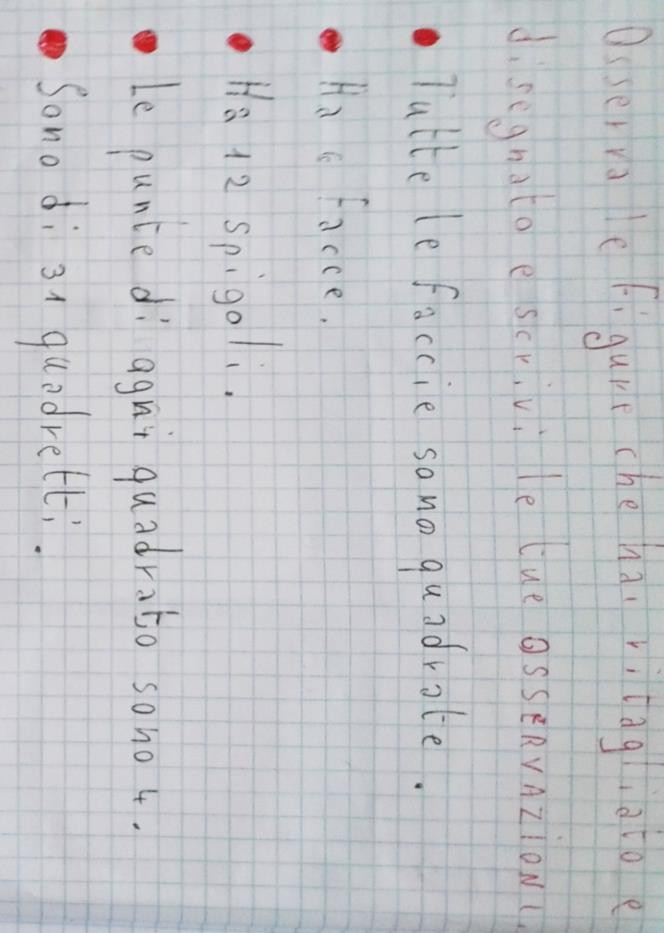 Osserva le figure che hai ritagliato e
disegnato e scrivi le tue OSSERVAZIONI.
Tutte le faccie sono quadrate.
Ha 6 facce.
Ha 12 spigoli.
Le punte di agni quadrato sono 4.
Sono di 31 quadretti.